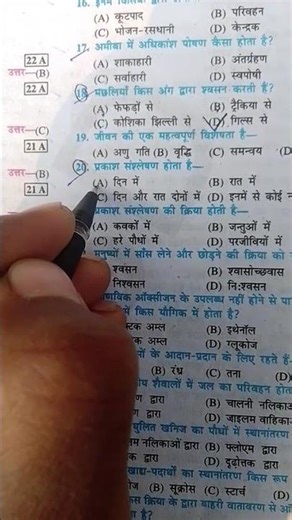 (A) कूटपाद (B) परिवहन
(C) भोजन-रसधानी (D) केन्द्रक
17. अमीबा में अधिकांश पोषण कैसा होता है?
22 A (A) शाकाहारी (B) अंतर्ग्रहण
उत्तर—(B) (C) सर्वाहारी (D) स्वपोषी
22 A 18. मछलियाँ किस अंग द्वारा श्वसन करती हैं?
(A) फेफड़ों से (B) ट्रैकिया से
उत्तर—(C) (C) कोशिका झिल्ली से (D) गिल्स से
21 A 19. जीवन की एक महत्वपूर्ण विशेषता है—
(A) अणु गति (B) वृद्धि (C) समन्वय (D
उत्तर—(B) 20. प्रकाश संश्लेषण होता है—
21 A (A) दिन में (B) रात में
(C) दिन और रात दोनों में (D) इनमें से कोई न
प्रकाश संश्लेषण की क्रिया होती है—
(A) कवकों में (B) जन्तुओं में
(C) हरे पौधों में (D) परजीवियों में
मनुष्यों में साँस लेने और छोड़ने की क्रिया को
श्वसन (B) श्वासोच्छवास
निश्वसन (D) निःश्वसन
ऑक्सीजन के उपलब्ध नहीं होने से पा
में किस यौगिक में होता है?
अम्ल (B) इथेनॉल
अम्ल (D) ग्लूकोज
के आदान-प्रदान के लिए रहते हैं-
(B) रंध्र (C) तना (D)
शैवालों में जल का परिवहन होता
द्वारा (B) चालनी नलिका
द्वारा (D) जाइलम वाहिका
खनिज का पौधों में स्थानांतरण
नलिकाओं द्वारा (B) फ्लोएम द्वारा
द्वारा (D) दृढ़ोत्तक द्वारा
खाद्य-पदार्थों का स्थानांतरण किस रूप
(B) सुक्रोस (C) स्टार्च (D)
क्रिया के द्वारा बाहरी वातावरण से
है?